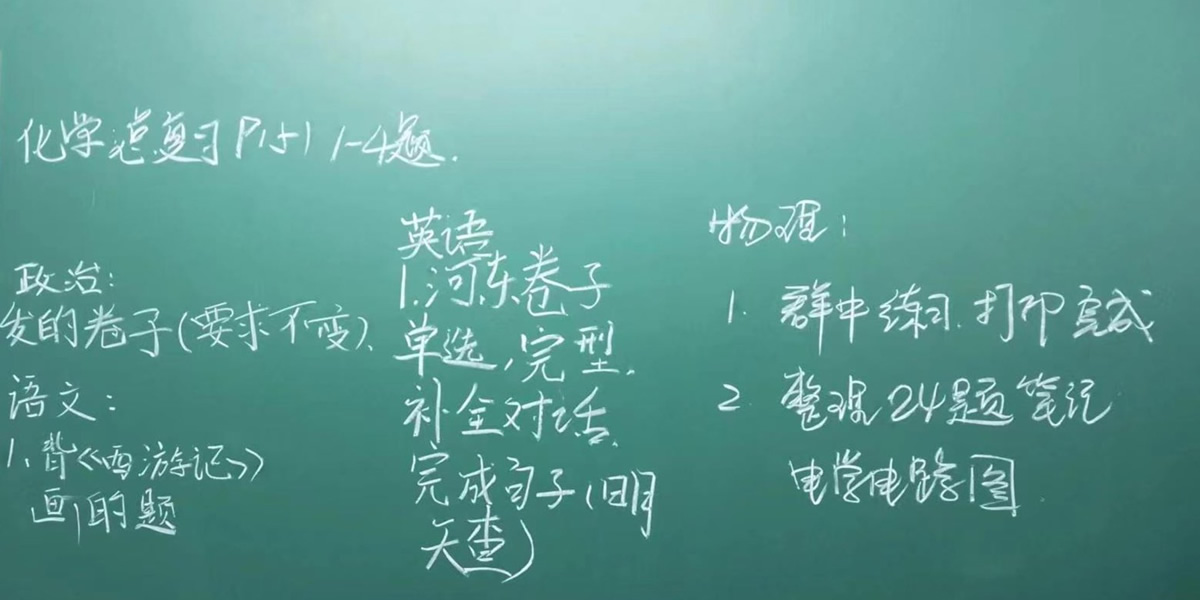 化学总复习 P151 1-4题.
政治:
发的卷子(要求不变)、
语文:
1、背《西游记》
画的题
英语
1.河东卷子
单选,完型.
补全对话.
完成句子(明
天查)
物理:
1. 群中练习.打印完成
2. 整理24题笔记
电学电路图.